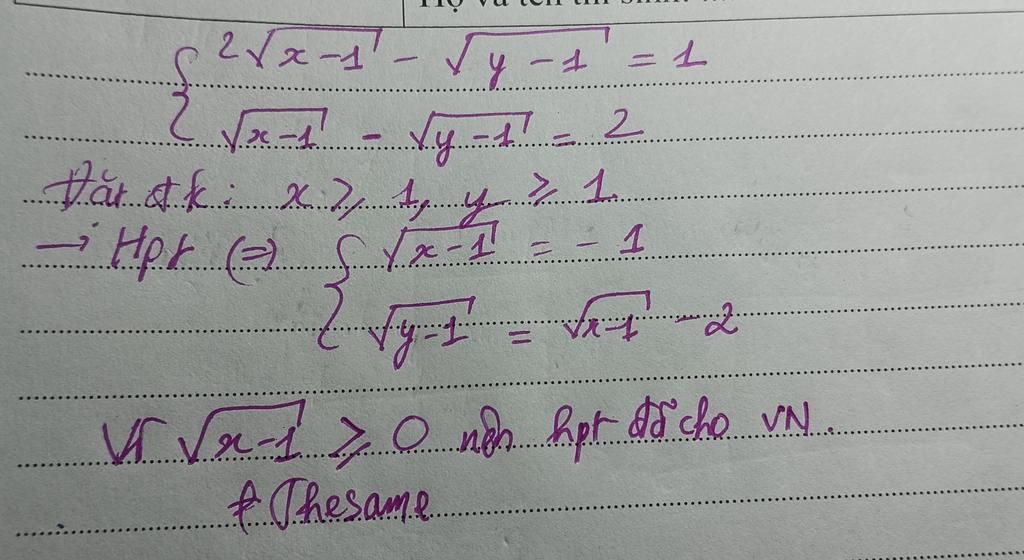 2√(x-1) - √(y-1) = 1
√(x-1) - √(y-1) = 2
Đặt đk: x ≥ 1, y ≥ 1
→ Hpt (=) { √(x-1) = - 1
√(y-1) = √(x-1) - 2
Vì √(x-1) ≥ 0 nên hpt đã cho VN.
# Thesame